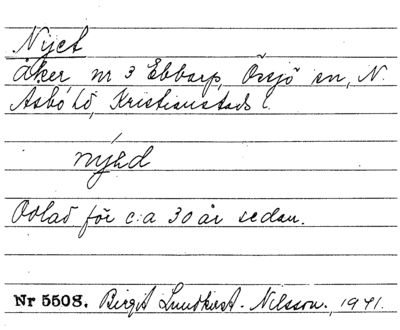 Nyet
åker nr 3 Ebbarp, Örsjö sn, N.
Åsbo hd, Kristianstads l.
nýed
Odlad för c:a 30 år sedan.
Nr 5508. Birgit Lundkvist-Nilsson, 1941.